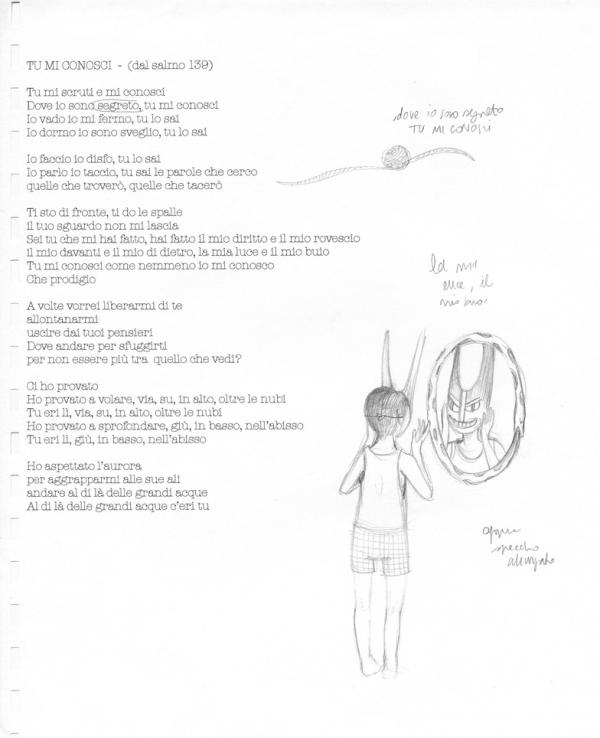 TU MI CONOSCI - (dal salmo 139)
Tu mi scruti e mi conosci
Dove io sono segreto, tu mi conosci
Io vado io mi fermo, tu lo sai
Io dormo io sono sveglio, tu lo sai
Io faccio io disfo, tu lo sai
Io parlo io taccio, tu sai le parole che cerco
quelle che troverò, quelle che tacerò
Ti sto di fronte, ti do le spalle
il tuo sguardo non mi lascia
Sei tu che mi hai fatto, hai fatto il mio diritto e il mio rovescio
il mio davanti e il mio di dietro, la mia luce e il mio buio
Tu mi conosci come nemmeno io mi conosco
Che prodigio
A volte vorrei liberarmi di te
allontanarmi
uscire dai tuoi pensieri
Dove andare per sfuggirti
per non essere più tra quello che vedi?
Ci ho provato
Ho provato a volare, via, su, in alto, oltre le nubi
Tu eri lì, via, su, in alto, oltre le nubi
Ho provato a sprofondare, giù, in basso, nell'abisso
Tu eri lì, giù, in basso, nell'abisso
Ho aspettato l'aurora
per aggrapparmi alle sue ali
andare al di là delle grandi acque
Al di là delle grandi acque c'eri tu
dove io sono segreto
TU MI CONOSCI
la mia
luce, il
mio buio
specchio